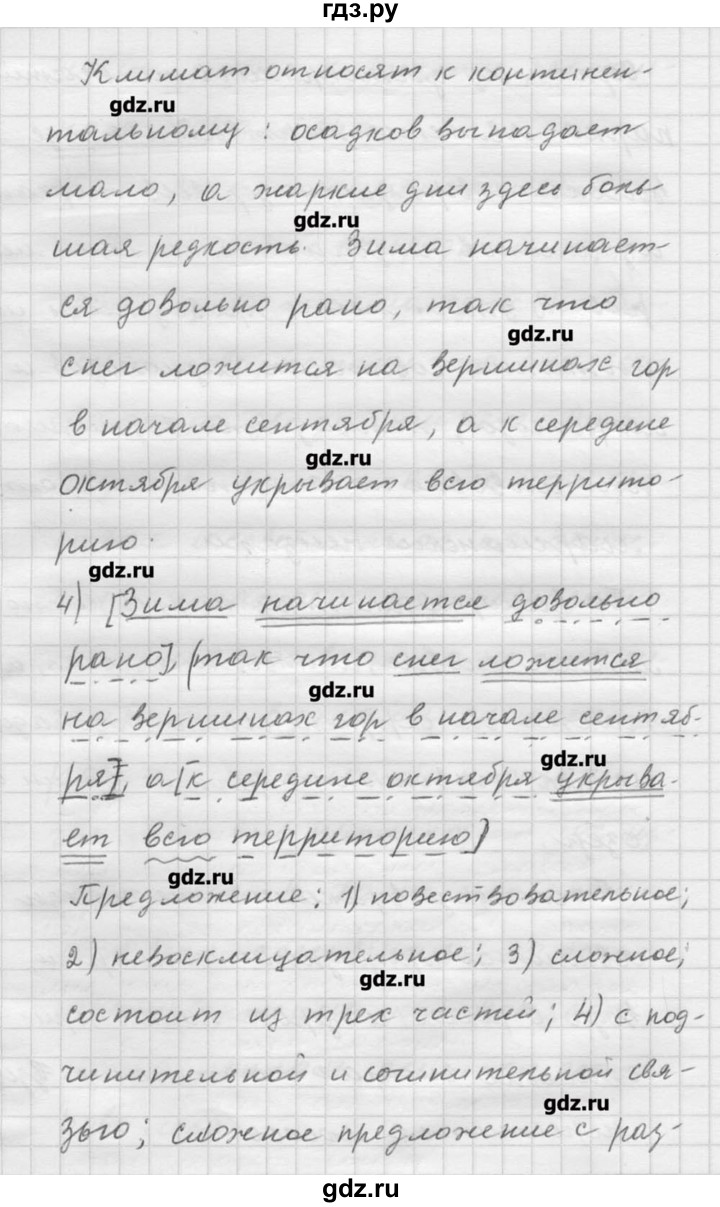 гдз.ру
Климат относят к континен-
gdz.ru
тальному: осадков выпадает
мало, а жаркие дни здесь боль-
gdz.ru
шая редкость. Зима начинает-
ся довольно рано, так что
gdz.ru
снег ложится на вершинах гор
в начале сентября, а к середине
gdz.ru
октября укрывает всю террито-
рию.
gdz.ru
4) [Зима начинается довольно
рано], (так что снег ложится
gdz.ru
на вершинах гор в начале сентяб-
gdz.ru
ря], а [к середине октября укрыва-
ет всю территорию)
gdz.ru
Предложение: 1) повествовательное;
2) невосклицательное; 3) сложное,
gdz.ru
состоит из трех частей; 4) с под-
чинительной и сочинительной свя-
gdz.ru
зью; сложное предложение с раз-
gdz.ru